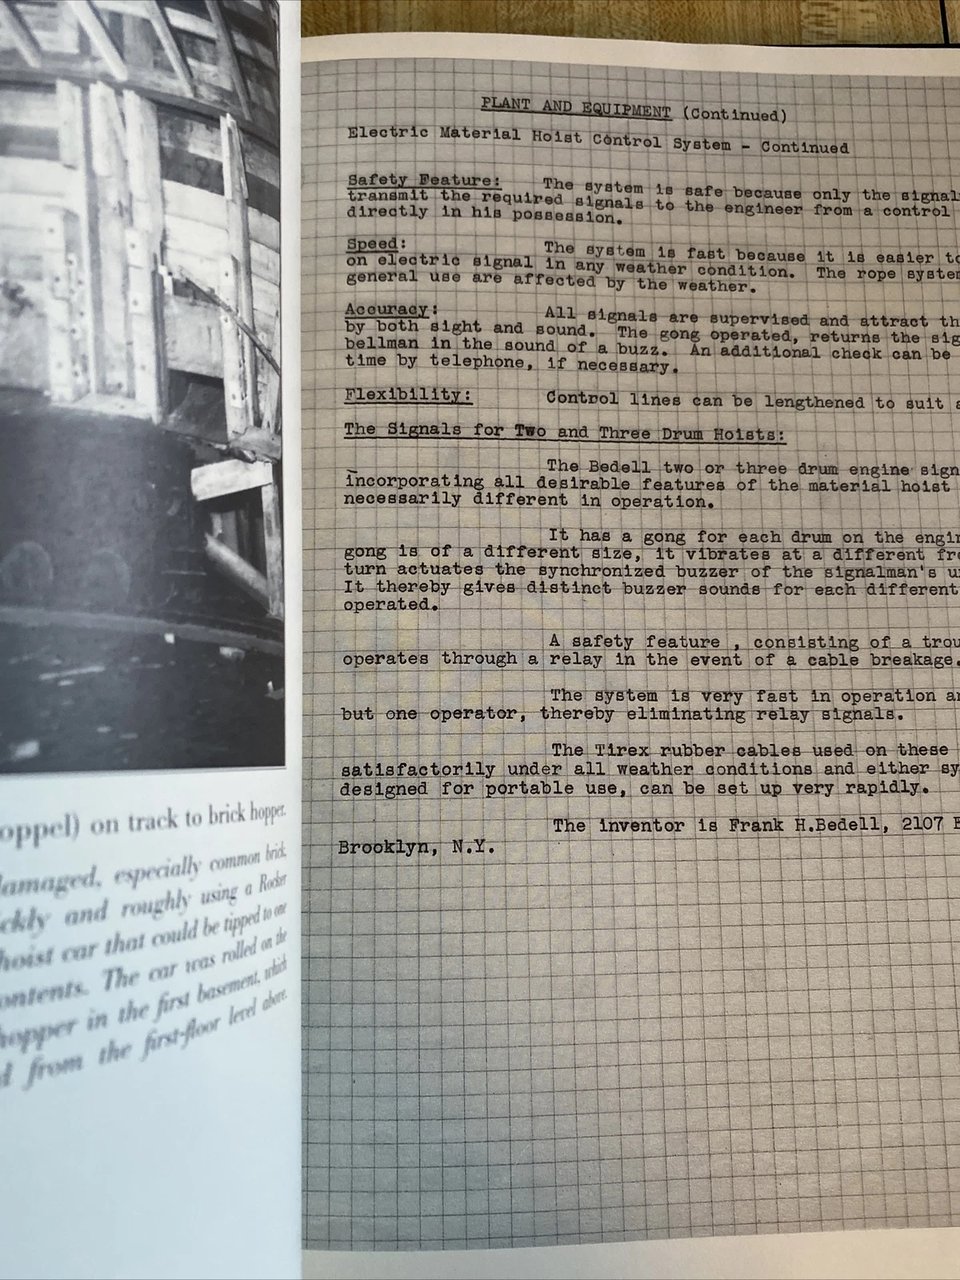 oppel) on track to brick hopper.
damaged, especially common brick,
ckly and roughly using a Rocker
hoist car that could be tipped to one
ontents. The car was rolled on the
hopper in the first basement, which
d from the first-floor level above.
PLANT AND EQUIPMENT (Continued)
Electric Material Hoist Control System - Continued
Safety Feature: The system is safe because only the signal
transmit the required signals to the engineer from a control
directly in his possession.
Speed: The system is fast because it is easier to
on electric signal in any weather condition. The rope system
general use are affected by the weather.
Accuracy: All signals are supervised and attract th
by both sight and sound. The gong operated, returns the sig
bellman in the sound of a buzz. An additional check can be
time by telephone, if necessary.
Flexibility: Control lines can be lengthened to suit a
The Signals for Two and Three Drum Hoists:
The Bedell two or three drum engine sign
incorporating all desirable features of the material hoist
necessarily different in operation.
It has a gong for each drum on the engin
gong is of a different size, it vibrates at a different fre
turn actuates the synchronized buzzer of the signalman's u
It thereby gives distinct buzzer sounds for each different
operated.
A safety feature , consisting of a trou
operates through a relay in the event of a cable breakage.
The system is very fast in operation an
but one operator, thereby eliminating relay signals.
The Tirex rubber cables used on these
satisfactorily under all weather conditions and either sy
designed for portable use, can be set up very rapidly.
The inventor is Frank H.Bedell, 2107 E
Brooklyn, N.Y.